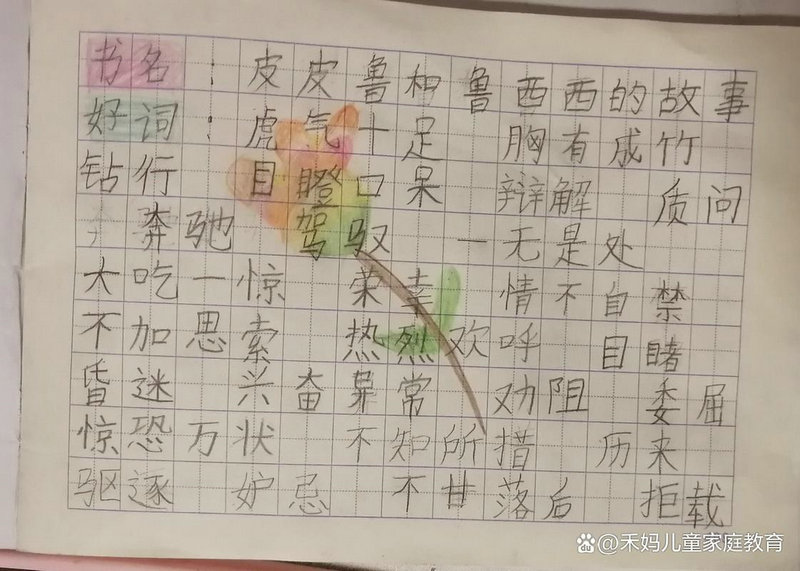 书名：皮皮鲁和鲁西西的故事
好词：虎气十足 胸有成竹
钻行 目瞪口呆 辩解 质问
奔驰 驾驭 一无是处
大吃一惊 荣幸 情不自禁
不加思索 热烈欢呼 目睹
昏迷 兴奋异常 劝阻 委屈
惊恐万状 不知所措 历来
驱逐 妒忌 不甘落后 拒载
禾妈儿童家庭教育